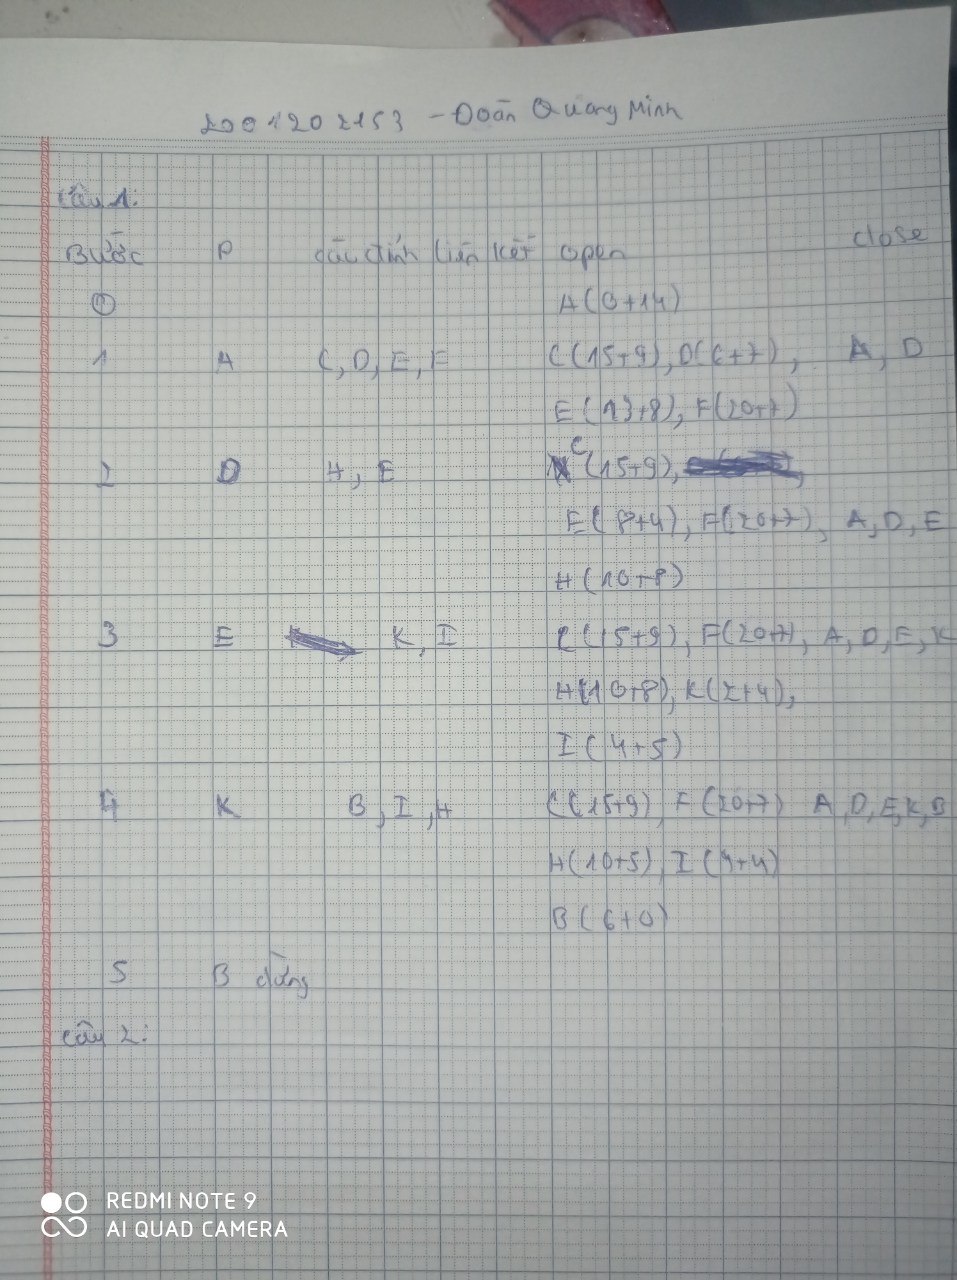 2001202153 - Đoàn Quang Minh
Câu 1:
Bước P các đỉnh liên kết open close
0 A(0+14)
1 A C, D, E, F C(15+9), D(6+7), A, D
E(13+8), F(20+7)
2 D H, E C(15+9),
E(8+4), F(20+7), A, D, E
H(10+8)
3 E K, I C(15+9), F(20+7), A, D, E, K
H(10+8), K(2+4),
I(4+5)
4 K B, I, H C(15+9), F(20+7) A, D, E, K, B
H(10+5), I(4+4)
B(6+0)
5 B dừng
câu 2:
REDMI NOTE 9
AI QUAD CAMERA